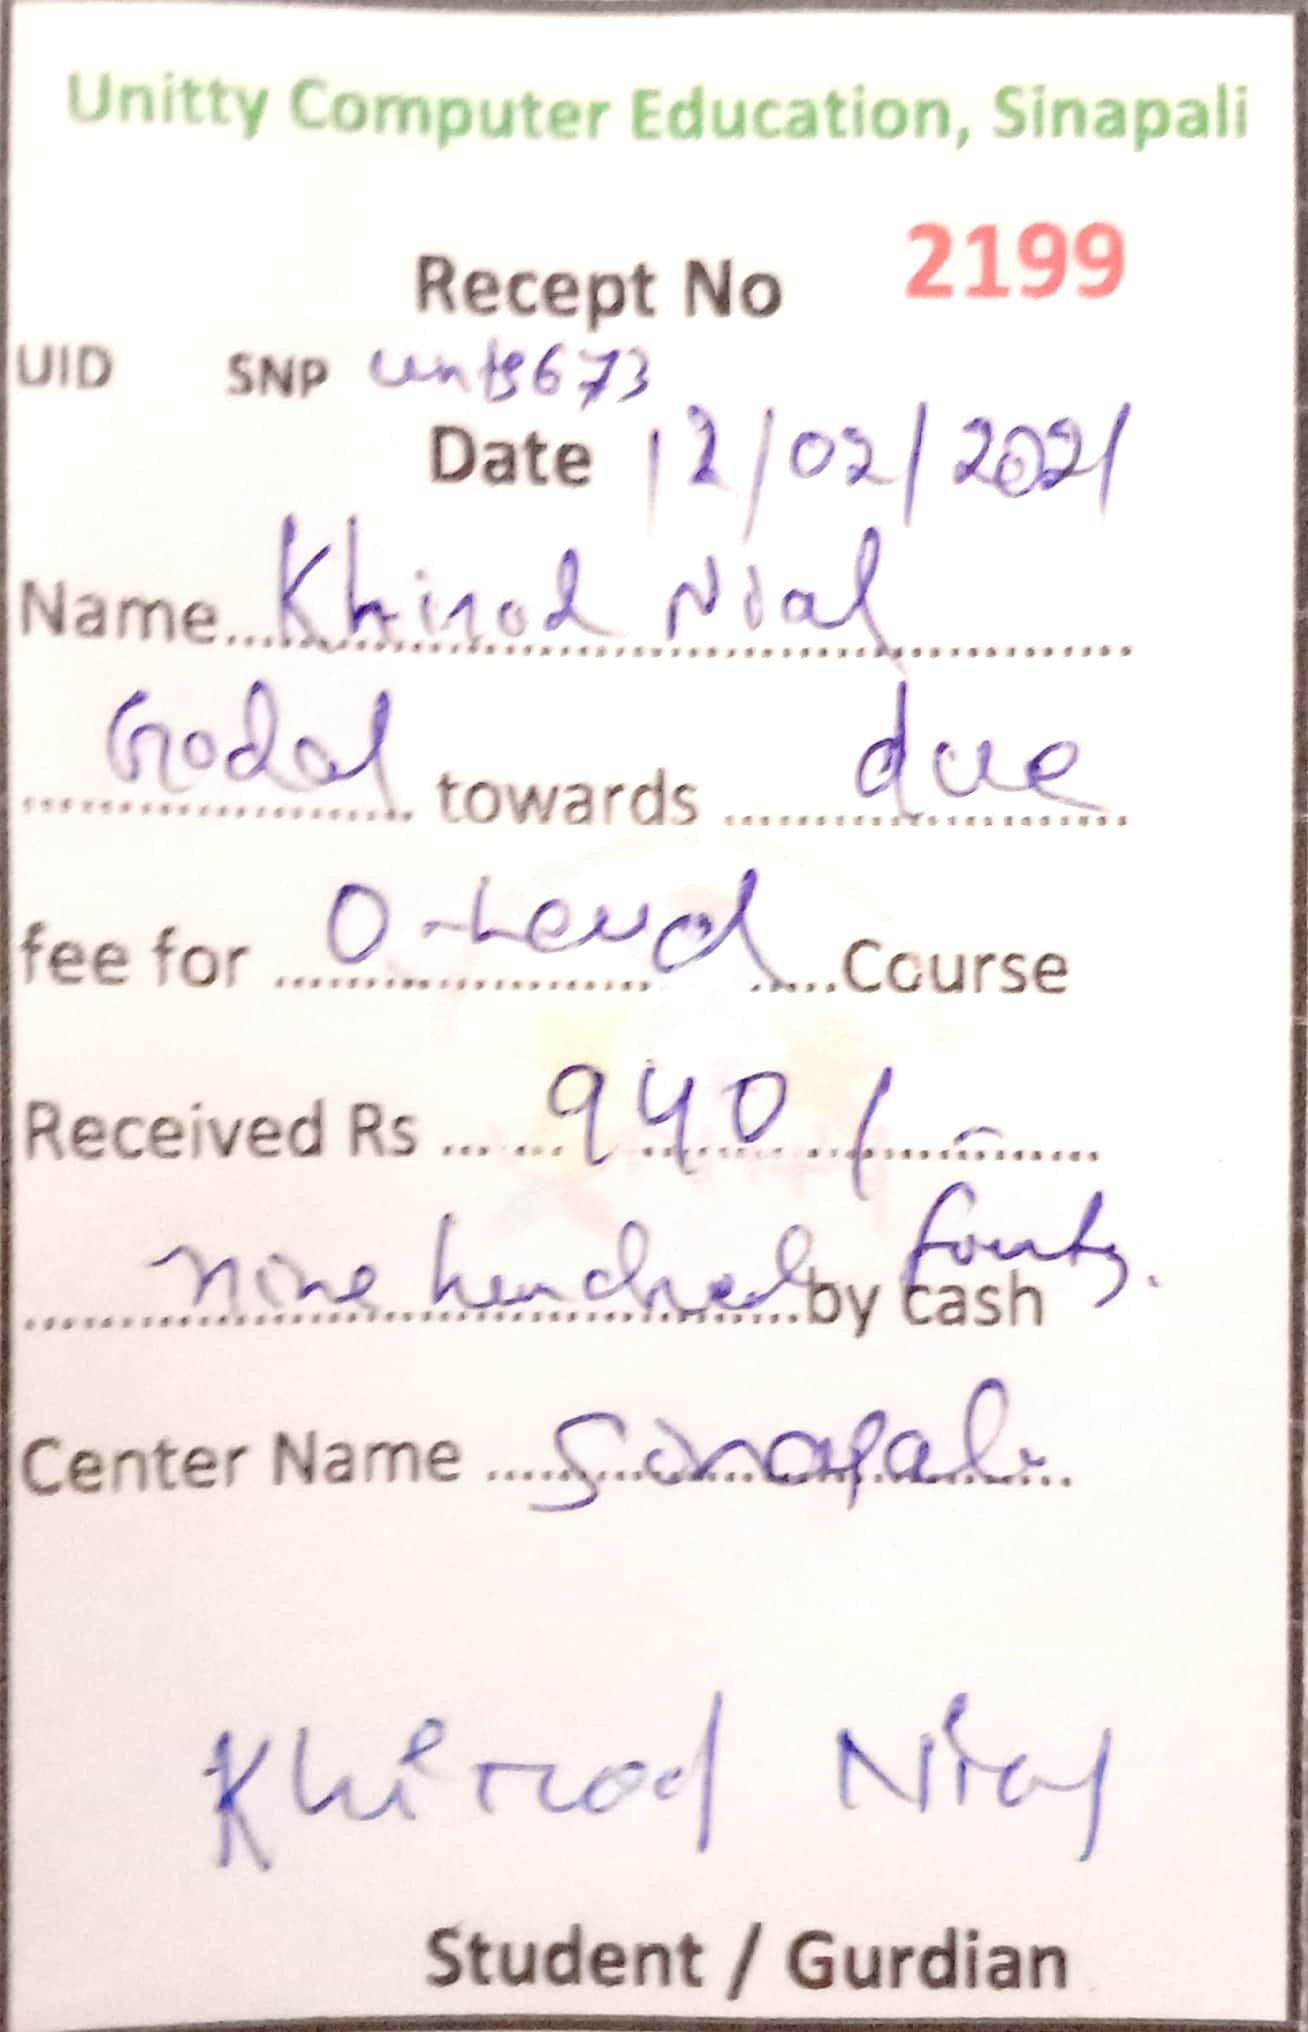 Unitty Computer Education, Sinapali
Recept No 2199
UID SNP
Date 12/02/2021
Name Khirod Nial
Godal towards due
fee for O-Level Course
Received Rs 940/-
nine hundred fourty. by cash
Center Name Sinapali
Khirod Nial
Student / Gurdian